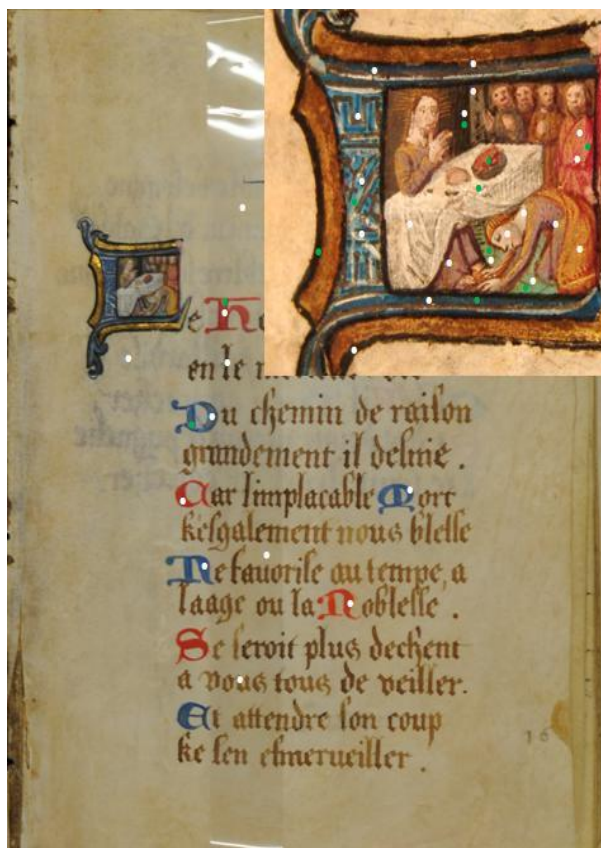 en le
Du chemin de raison
grandement il
Car limplacable Mort
kesgalement nous blesse
Ne fauorise au tempe, a
laage ou la Noblesse .
Se seroit plus dechent
a vous tous de veiller.
Et attendre son coup
ke sen esmerueiller .
16